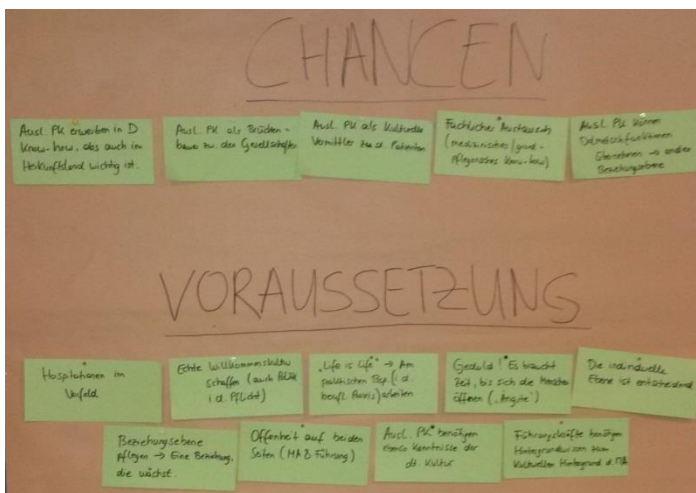 CHANCEN
Ausl. PK erwerben in D
Know-how, das auch im
Herkunftsland wichtig ist.
Ausl. PK als Brücken-
bauer zw. den Gesellschaften
Ausl. PK als Kultureller
Vermittler zu d. Patienten
Fachlicher Austausch
(medizinisches/
pflegerisches Know-how)
Ausl. PK können
Dolmetschfunktionen
übernehmen → andere
Beziehungsebene
VORAUSSETZUNG
Hospitationen im
Vorfeld
Echte Willkommenskultur
schaffen (auch Politik
i.d. Pflicht)
"Life is Life" → Am
praktischen Bsp. (i.d.
berufl. Praxis) arbeiten
Geduld! Es braucht
Zeit, bis sich die Menschen
öffnen ("Ängste")
Die individuelle
Ebene ist entscheidend
Beziehungsebene
pflegen → Eine Beziehung,
die wächst.
Offenheit auf beiden
Seiten (MA & Führung)
Ausl. PK benötigen
ebenso Kenntnisse der
dt. Kultur
Führungskräfte benötigen
Hintergrundwissen zum
Kulturellen Hintergrund d. MA